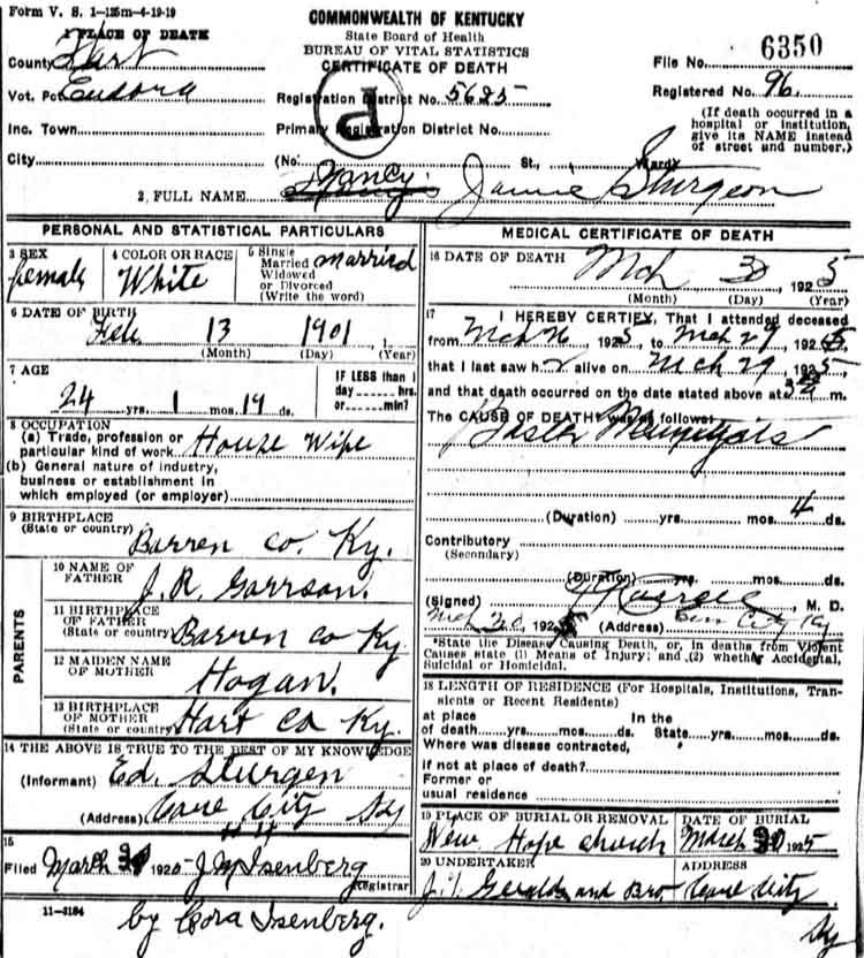 Form V. S. 1-125m-4-19-19
COMMONWEALTH OF KENTUCKY
State Board of Health
BUREAU OF VITAL STATISTICS
CERTIFICATE OF DEATH
1 PLACE OF DEATH
County Hart
Vot. Pct. Eudora
Inc. Town
City
File No. 6350
Registered No. 96
(If death occurred in a
hospital or institution,
give its NAME instead
of street and number.)
Registration District No. 5625
P
Primary Registration District No.
(No. St., Ward)
2. FULL NAME Nancy Jannie Sturgeon
PERSONAL AND STATISTICAL PARTICULARS
3 SEX
female
4 COLOR OR RACE
White
5 Single
Married
Widowed
or Divorced
(Write the word)
married
6 DATE OF BIRTH
Feb 13 1901, 1
(Month) (Day) (Year)
7 AGE
24 yrs. 1 mos. 19 ds.
IF LESS than 1
day hrs.
or min?
8 OCCUPATION
(a) Trade, profession or
particular kind of work House Wife
(b) General nature of industry,
business or establishment in
which employed (or employer)
9 BIRTHPLACE
(State or country) Barren co. Ky.
PARENTS
10 NAME OF
FATHER J. R. Garrson.
11 BIRTHPLACE
OF FATHER
(State or country) Barren co Ky
12 MAIDEN NAME
OF MOTHER Hogan.
13 BIRTHPLACE
OF MOTHER
(State or country) Hart Co Ky.
14 THE ABOVE IS TRUE TO THE BEST OF MY KNOWLEDGE
(Informant) Ed. Sturgen
(Address) Cave City Ky
15
Filed March 30 1925 J M Isenberg
Registrar
11-3184
by Cora Isenberg.
MEDICAL CERTIFICATE OF DEATH
16 DATE OF DEATH
Mch 30, 1925
(Month) (Day) (Year)
17 I HEREBY CERTIFY, That I attended deceased
from Mch 26 1925, to Mch 29, 1925,
that I last saw h r alive on Mch 29, 1925,
and that death occurred on the date stated above at m.
The CAUSE OF DEATH* was as follows:
(Duration) yrs. mos. 4 ds.
Contributory
(Secondary)
(Duration) yrs. mos. ds.
(Signed) , M. D.
Mch 30, 1925 (Address) City Ky
*State the Disease Causing Death, or, in deaths from Violent
Causes state (1) Means of Injury; and (2) whether Accidental,
Suicidal or Homicidal.
18 LENGTH OF RESIDENCE (For Hospitals, Institutions, Tran-
sients or Recent Residents)
at place In the
of death yrs. mos. ds. State yrs. mos. ds.
Where was disease contracted,
if not at place of death?
Former or
usual residence
19 PLACE OF BURIAL OR REMOVAL
New Hope church
DATE OF BURIAL
March 30 1925
20 UNDERTAKER
J. T. Geralds and Bro.
ADDRESS
Cave City
Ky